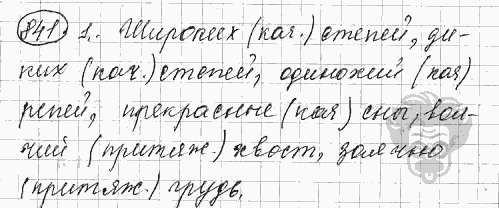 841. 1. Широких (кач.) степей, ди-
ких (кач.) степей, одинокий (кач)
репей, прекрасные (кач) сны, вол-
чий (притяж.) хвост, заячью
(притяж.) грудь.